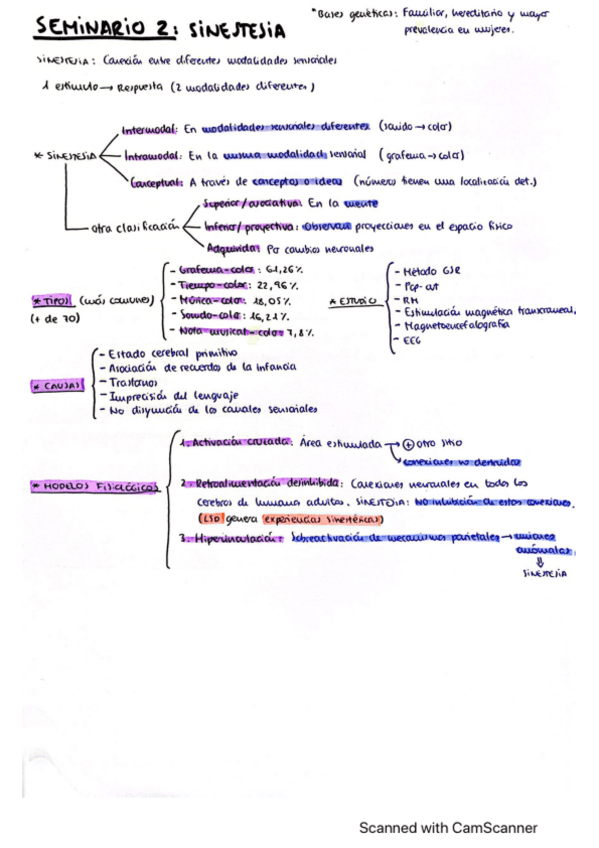 SEMINARIO 2: SINESTESIA
*Bases genéticas: Familiar, hereditario y mayor
prevalencia en mujeres.
SINESTESIA: Conexión entre diferentes modalidades sensoriales
1 estímulo → Respuesta (2 modalidades diferentes)
* SINESTESIA
Intermodal: En modalidades sensoriales diferentes (sonido → color)
Intramodal: En la misma modalidad sensorial (grafema → color)
Conceptual: A través de conceptos o ideas (números tienen una localización det.)
otra clasificación
Superior/asociativa: En la mente
Inferior/proyectiva: Observan proyecciones en el espacio físico
Adquirida: Por cambios neuronales
* TIPOS (más comunes)
(+ de 70)
- Grafema-color: 61,26%
- Tiempo-color: 22,96%
- Música-color: 18,05%
- Sonido-color: 16,21%
- Nota musical-color: 7,8%
* ESTUDIO
- Método GSR
- Pop-out
- RM
- Estimulación magnética transcraneal,
- Magnetoencefalografía
- ECG
* CAUSAS
- Estado cerebral primitivo
- Asociación de recuerdos de la infancia
- Trastornos
- Imprecisión del lenguaje
- No disyunción de los canales sensoriales
* MODELOS FISIOLÓGICOS
1. Activación cruzada: Área estimulada → ⊕ otro sitio
conexiones no destruidas
2. Retroalimentación desinhibida: Conexiones neuronales en todos los
cerebros de humanos adultos. SINESTESIA: NO inhibición de estas conexiones.
(LSD genera experiencias sinestésicas)
3. Hipervinculación: Sobreactivación de mecanismos parietales → uniones
anómalas.
⇓
SINESTESIA
Scanned with CamScanner